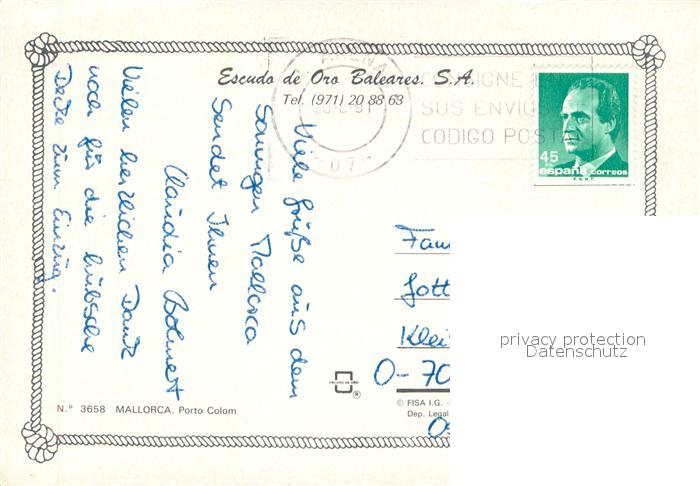 Escudo de Oro Baleares. S.A.
Tel. (971) 20 88 63
ARENA
07
CONSIGNE
SUS ENVIO
CODIGO POST
45
españa correos
F.N.M.T.
Viele Grüße aus dem
Sonnigen Mallorca
Sendet Ihnen
Claudia
Vielen herzlichen Dank
noch für die hübsche
Decke zum Einzug.
Fam
Gott
Klei
O-70
privacy protection
Datenschutz
N.º 3658 MALLORCA. Porto Colom
© FISA I.G. -
Dep. Legal